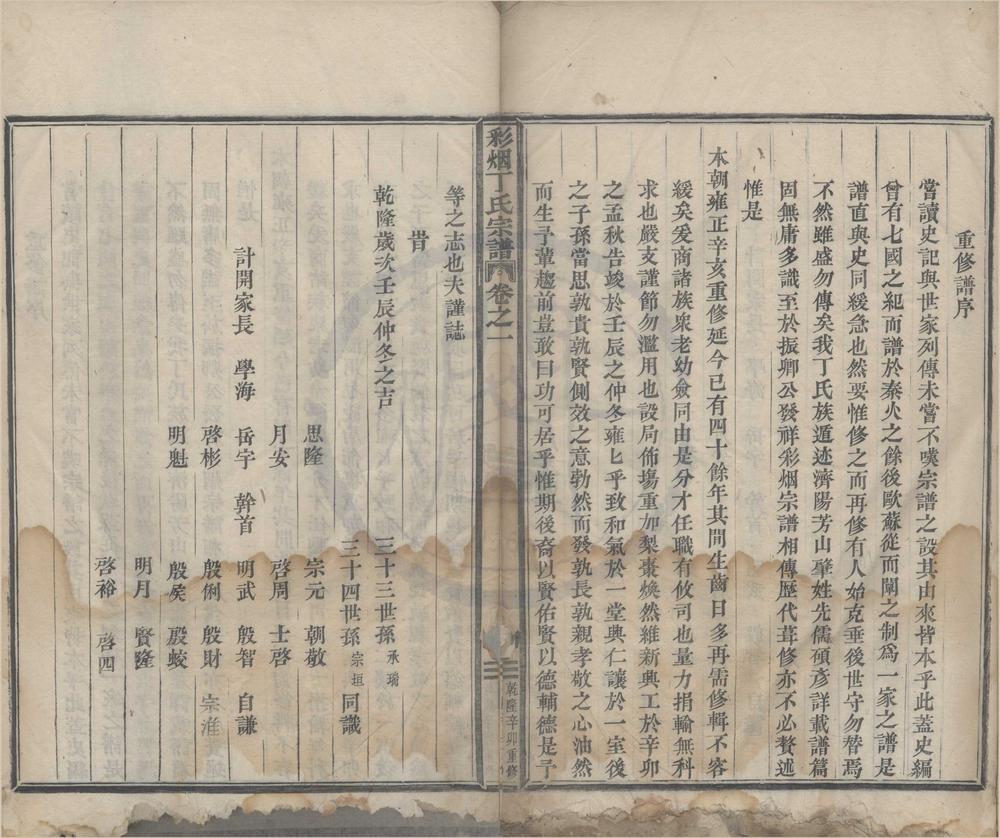 重修譜序
嘗讀史記與世家列傳未嘗不嘆宗譜之設其由來皆本乎此蓋史編
曾有七國之紀而譜於秦火之餘後歐蘇從而闡之制為一家之譜是
譜直與史同緩急也然要惟修之而再修有人始克垂後世守勿替焉
不然雖盛勿傳矣我丁氏族遁迹濟陽芳山肇姓先儒碩彥詳載譜篇
固無庸多識至於振卿公發祥彩烟宗譜相傳歷代葺修亦不必贅述
惟是
本朝雍正辛亥重修延今已有四十餘年其間生齒日多再需修輯不容
緩矣爰商諸族眾老幼僉同由是分才任職有攸司也量力捐輸無科
求也嚴支謹節勿濫用也設局佈塲重加梨棗煥然維新興工於辛卯
之孟秋告竣於壬辰之仲冬雍匕乎致和氣於一堂興仁讓於一室後
之子孫當思孰貴孰賢側效之意勃然而發孰長孰親孝敬之心油然
而生予輩趨前豈敢曰功可居乎惟期後裔以賢佑賢以德輔德是予
彩烟丁氏宗譜 卷之一 三 乾隆辛卯重修
等之志也夫謹誌
昔
乾隆歲次壬辰仲冬之吉 三十三世孫 承瑞
三十四世孫 宗垣 同識
思隆 宗元 朝敬
月安 啓周 士啓
計開家長 學海 岳宇 幹首 明武 殷智 自謙
啓彬 殷俐 殷財 宗淮
明魁 殷侯 殷蛟
明月 賢隆
啓裕 啓四